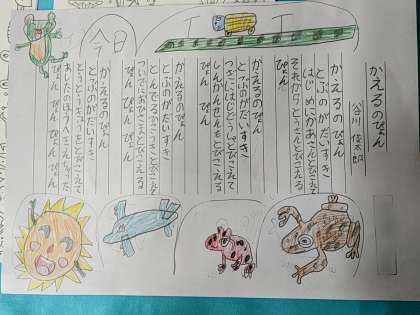 今日
かえるのぴょん
谷川俊太郎
かえるのぴょん
とぶのがだいすき
はじめにかあさんとびこえて
それからとうさんとびこえる
ぴょん
かえるのぴょん
とぶのがだいすき
つぎにはじどうしゃとびこえて
しんかんせんもとびこえる
ぴょん ぴょん
かえるのぴょん
とぶのがだいすき
とんでるひこうきとびこえて
ついでにおひさまとびこえる
ぴょん ぴょん ぴょん
かえるのぴょん
とぶのがだいすき
とうとうきょうをとびこえて
あしたのほうへきえちゃった
ぴょん ぴょん ぴょん ぴょん